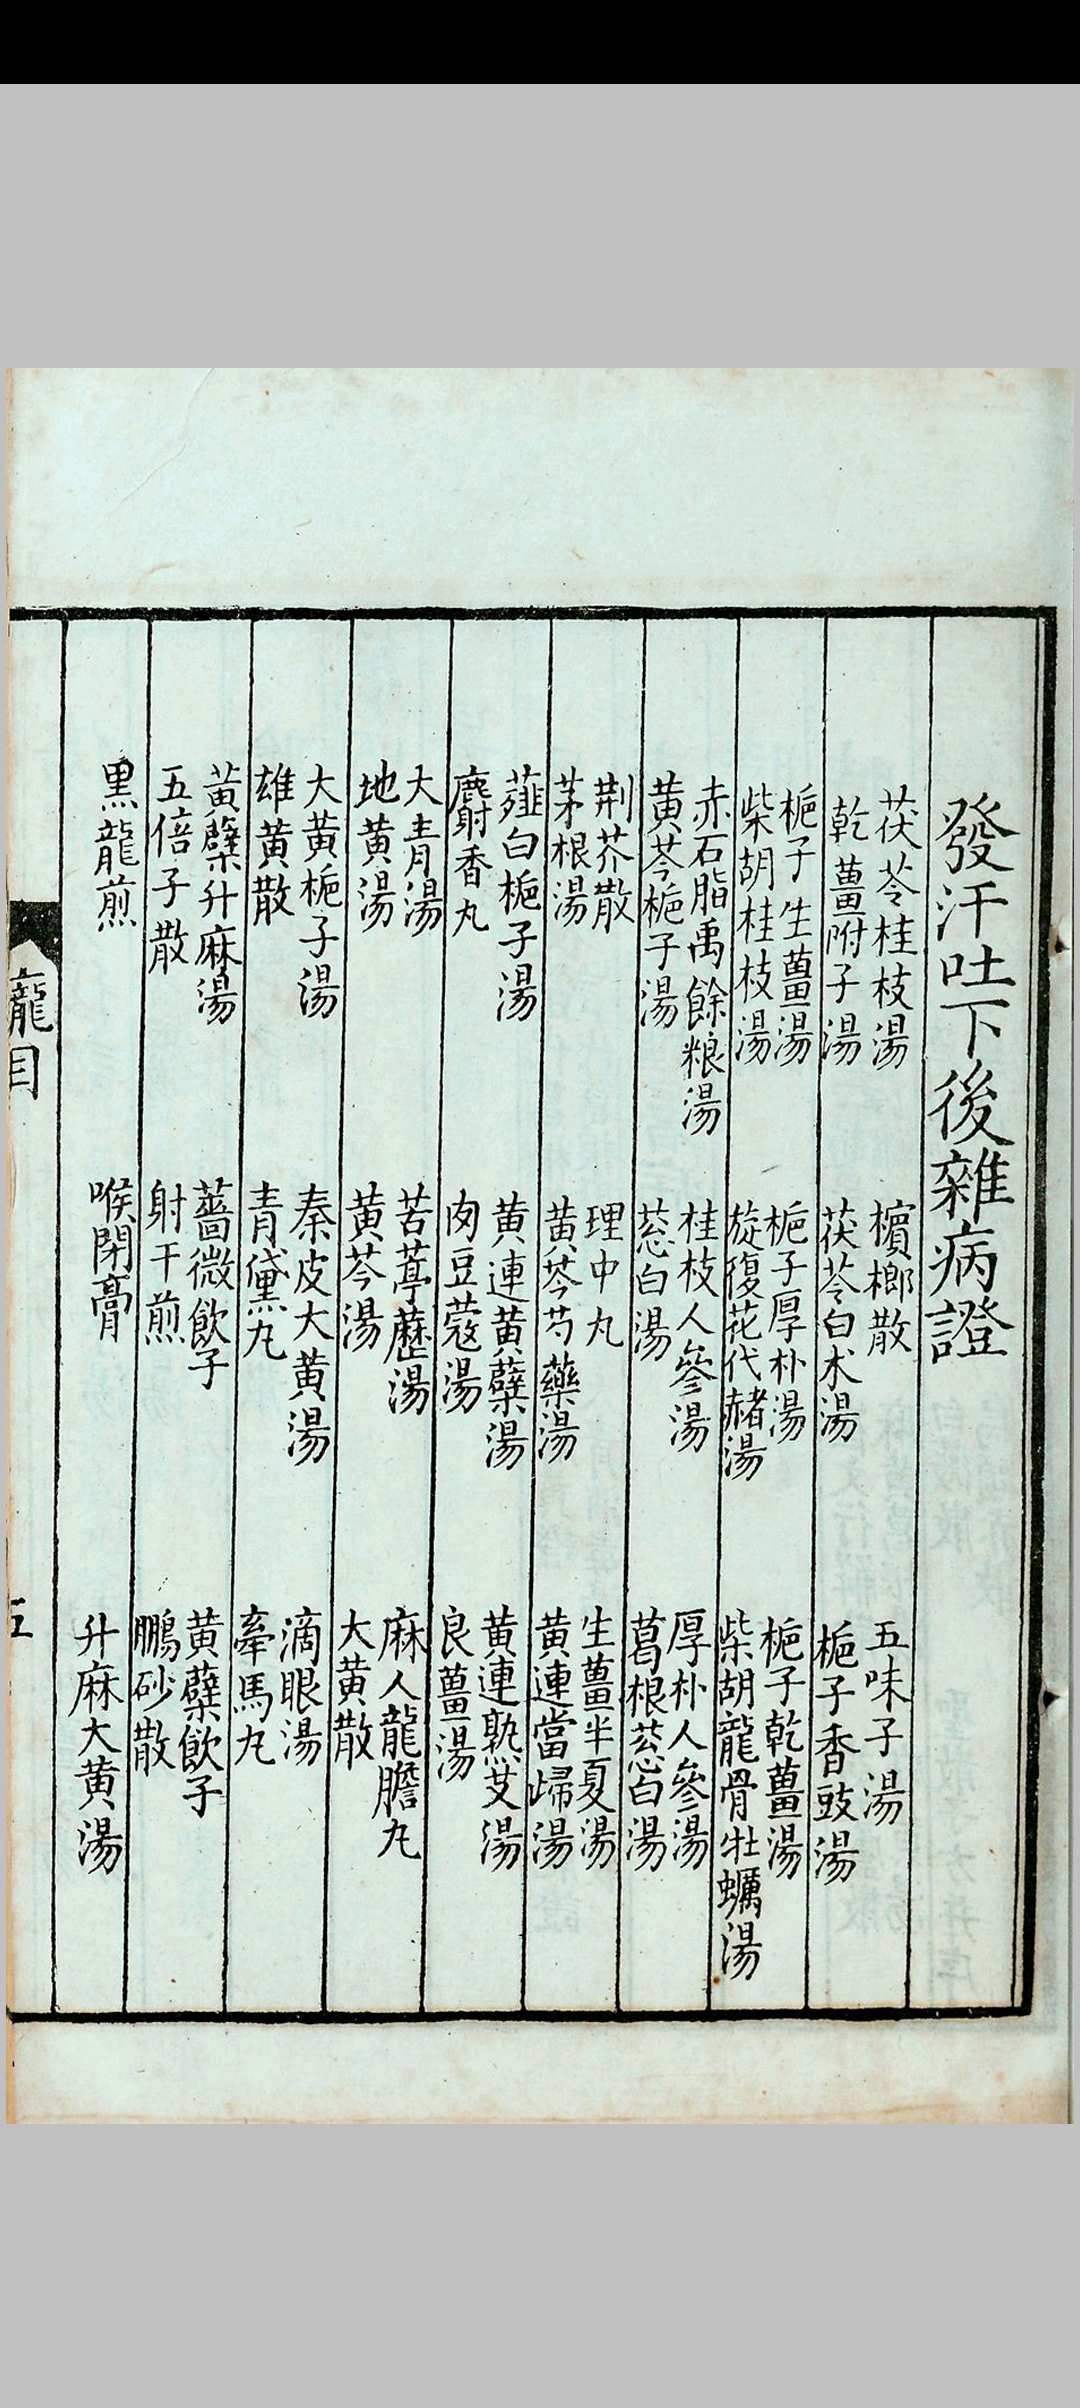 發汗吐下後雜病證
茯苓桂枝湯 檳榔散 五味子湯
乾薑附子湯 茯苓白朮湯 梔子香豉湯
梔子生薑湯 梔子厚朴湯 梔子乾薑湯
柴胡桂枝湯 旋復花代赭湯 柴胡龍骨牡蠣湯
赤石脂禹餘粮湯 桂枝人參湯 厚朴人參湯
黄芩梔子湯 葱白湯 葛根葱白湯
荆芥散 理中丸 生薑半夏湯
茅根湯 黄芩芍藥湯 黄連當歸湯
薤白梔子湯 黄連黄蘗湯 黄連熟艾湯
麝香丸 肉豆蔻湯 良薑湯
大青湯 苦葶藶湯 麻人龍膽丸
地黄湯 黄芩湯 大黄散
大黄梔子湯 秦皮大黄湯 滴眼湯
雄黄散 青黛丸 牽馬丸
黄蘗升麻湯 薔薇飲子 黄蘗飲子
五倍子散 射干煎 鵬砂散
黑龍煎 喉閉膏 升麻大黄湯
龐目 五